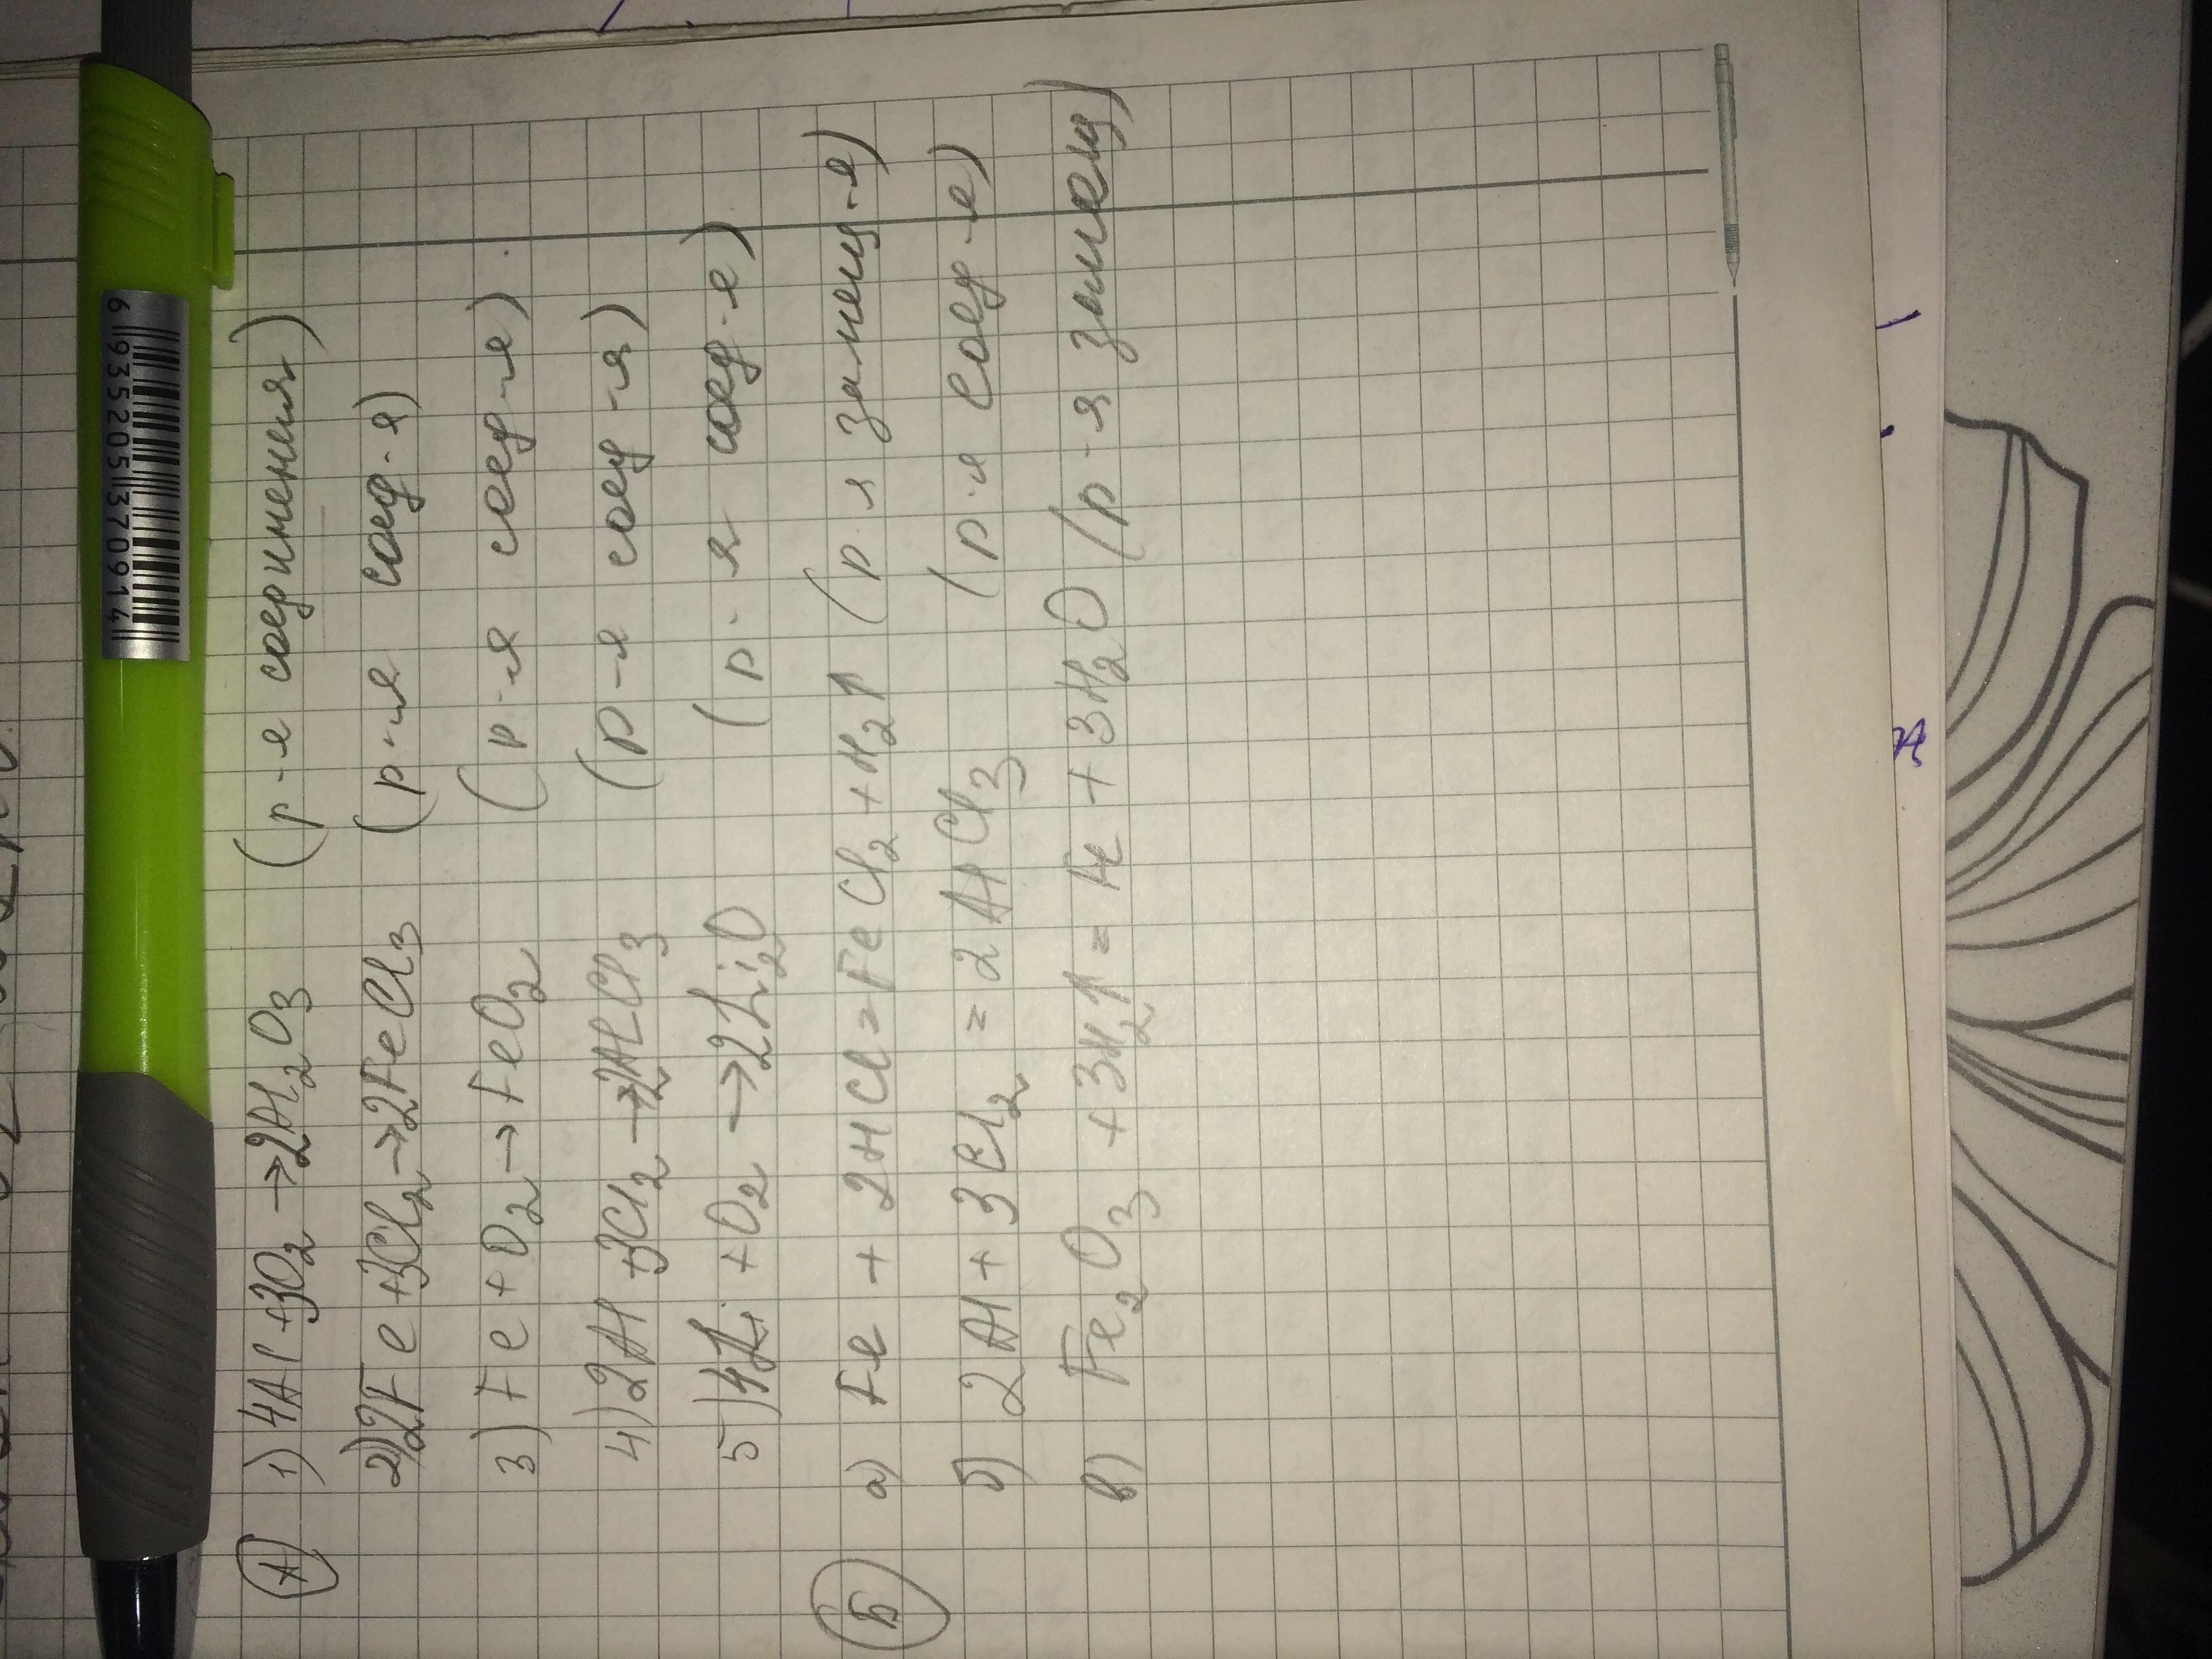 А 1) 4Al + 3O2 → 2Al2O3 (р-я соединения)
2) 2Fe + 3Cl2 → 2FeCl3 (р-я соед-я)
3) Fe + O2 → FeO2 (р-я соед-я)
4) 2Al + 3Cl2 → 2AlCl3 (р-я соед-я)
5) 4Li + O2 → 2Li2O (р-я соед-я)
Б а) Fe + 2HCl = FeCl2 + H2↑ (р-я замещ-я)
б) 2Al + 3Cl2 = 2AlCl3 (р-я соед-я)
в) Fe2O3 + 3H2↑ = Fe + 3H2O (р-я замещ)
6935205370914